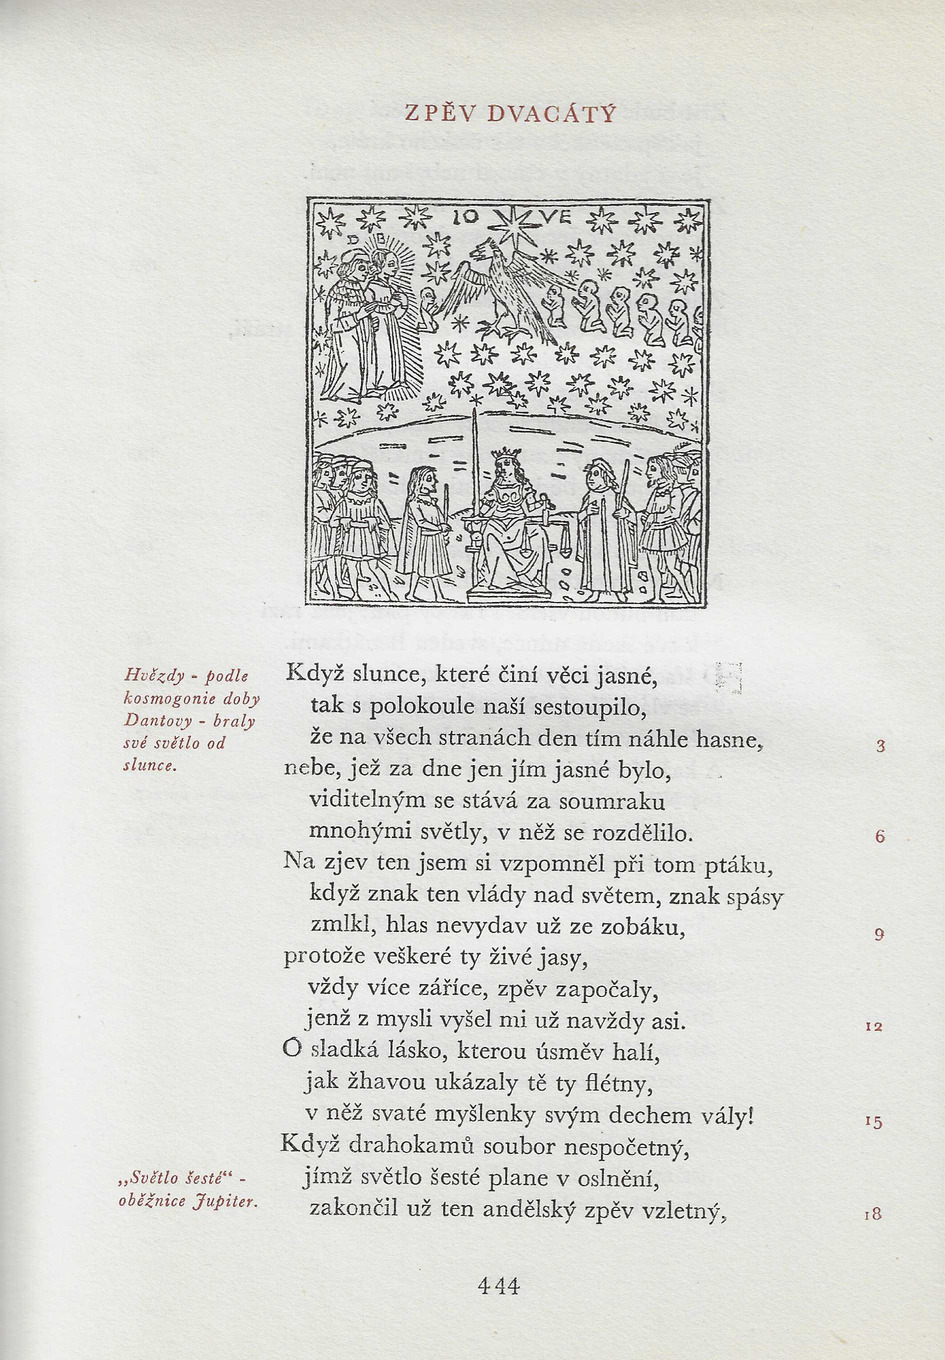 ZPĚV DVACÁTÝ
IO VE
D B
Hvězdy - podle
kosmogonie doby
Dantovy - braly
své světlo od
slunce.
Když slunce, které činí věci jasné,
tak s polokoule naší sestoupilo,
že na všech stranách den tím náhle hasne,
3
nebe, jež za dne jen jím jasné bylo,
viditelným se stává za soumraku
mnohými světly, v něž se rozdělilo.
6
Na zjev ten jsem si vzpomněl při tom ptáku,
když znak ten vlády nad světem, znak spásy
zmlkl, hlas nevydav už ze zobáku,
9
protože veškeré ty živé jasy,
vždy více záříce, zpěv započaly,
jenž z mysli vyšel mi už navždy asi.
12
Ó sladká lásko, kterou úsměv halí,
jak žhavou ukázaly tě ty flétny,
v něž svaté myšlenky svým dechem vály!
15
Když drahokamů soubor nespočetný,
jímž světlo šesté plane v oslnění,
zakončil už ten andělský zpěv vzletný,
18
„Světlo šesté“ -
oběžnice Jupiter.
444